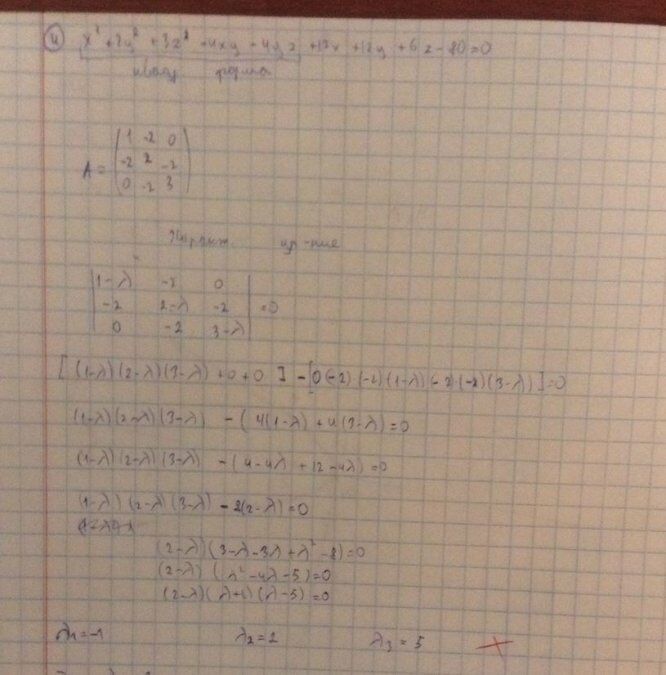 ④ x² + 2y² + 3z² - 4xy - 4yz + 12x + 12y + 6z - 80 = 0
форма
A = (1 -2 0
-2 2 -2
0 -2 3)
|1-λ -2 0|
|-2 2-λ -2| = 0
|0 -2 3-λ|
[(1-λ)(2-λ)(3-λ) + 0 + 0] - [0 (-2)(-2)(1-λ) (-2)(-2)(3-λ)] = 0
(1-λ)(2-λ)(3-λ) - (4(1-λ) + 4(3-λ) = 0
(1-λ)(2-λ)(3-λ) - (4-4λ + 12-4λ) = 0
(1-λ)(2-λ)(3-λ) - 8(2-λ) = 0
(2-λ)(3-λ-3λ+λ²-8) = 0
(2-λ)(λ²-4λ-5) = 0
(2-λ)(λ+1)(λ-5) = 0
λ₁ = -1 λ₂ = 2 λ₃ = 5